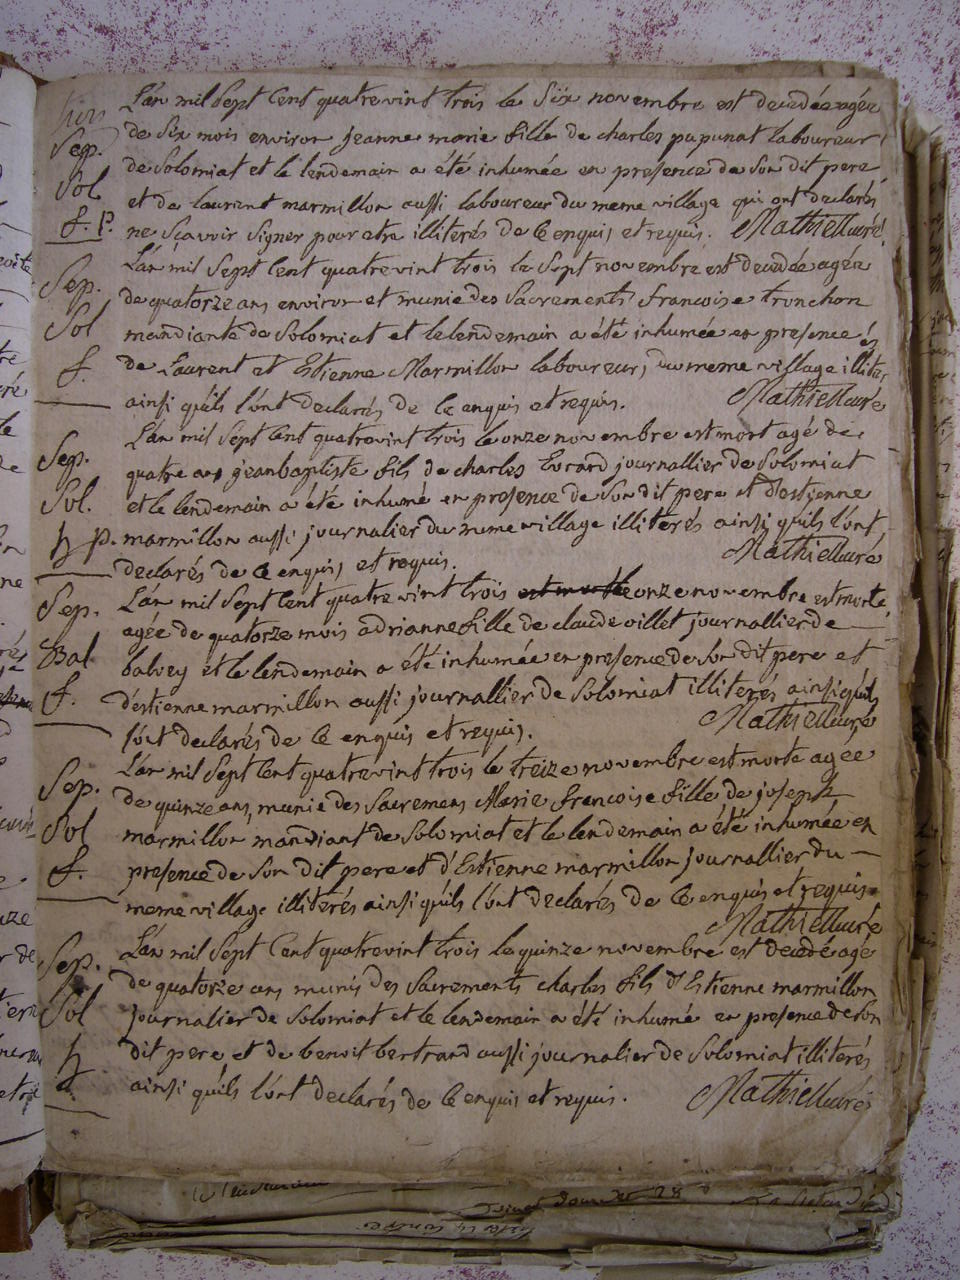 L'an mil sept cent quatrevint trois le six novembre est decedée agée
Sep.
de six mois environ jeanne marie fille de charles papunat laboureur
Sol
de Solomiat et le lendemain a été inhumée en presence de son dit pere
et de laurent marmillon aussi laboureur du meme village qui ont declarés
f. p.
ne sçavoir signer pour etre illiterés de ce enquis et requis. Mathieu curé
L'an mil sept cent quatrevint trois le sept novembre est decedée agée
Sep.
de quatorze ans environ et munie des sacrements francoise tronchon
Sol
mandiante de Solomiat et le lendemain a été inhumée en presence
f.
de Laurent et Estienne Marmillon laboureurs du meme village
ainsi quils l'ont declarés de ce enquis et requis. Mathieu curé
L'an mil sept cent quatrevint trois le onze novembre est mort agé de
Sep.
quatre ans jeanbaptiste fils de charles journallier de Solomiat
Sol.
et le lendemain a été inhumé en presence de son dit pere et d'estienne
h p.
marmillon aussi journalier du meme village illiterés ainsi quils l'ont
declarés de ce enquis et requis. Mathieu curé
Sep.
L'an mil sept cent quatre vint trois est morte onze novembre est morte
agée de quatorze mois adrianne fille de claude villet journallier de
Bal
balvey et le lendemain a été inhumée en presence de son dit pere et
f.
d'estienne marmillon aussi journallier de Solomiat illiterés ainsi quils
l'ont declarés de ce enquis et requis. Mathieu curé
L'an mil sept cent quatrevint trois le treize novembre est morte agée
Sep.
de quinze ans, munie des sacremens Marie francoise fille de joseph
Sol
marmillon mandiant de Solomiat et le lendemain a été inhumée en
f.
presence de son dit pere et d'Estienne marmillon journallier du
meme village illiterés ainsi quils l'ont declarés de ce enquis et requis.
Mathieu curé
L'an mil sept cent quatrevint trois le quinze novembre est decedé agé
Sep.
de quatorze ans munis des sacrements charles fils d'Estienne marmillon
Sol
journalier de Solomiat et le lendemain a été inhumé en presence de son
h
dit pere et de benoit bertrand aussi journalier de Solomiat illiterés
ainsi quils l'ont declarés de ce enquis et requis. Mathieu curé